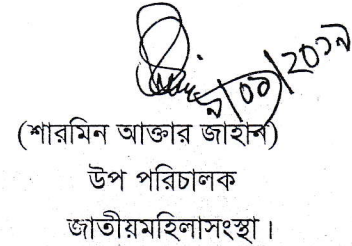 (শারমিন আক্তার জাহান)
উপ পরিচালক
জাতীয়মহিলাসংস্থা।